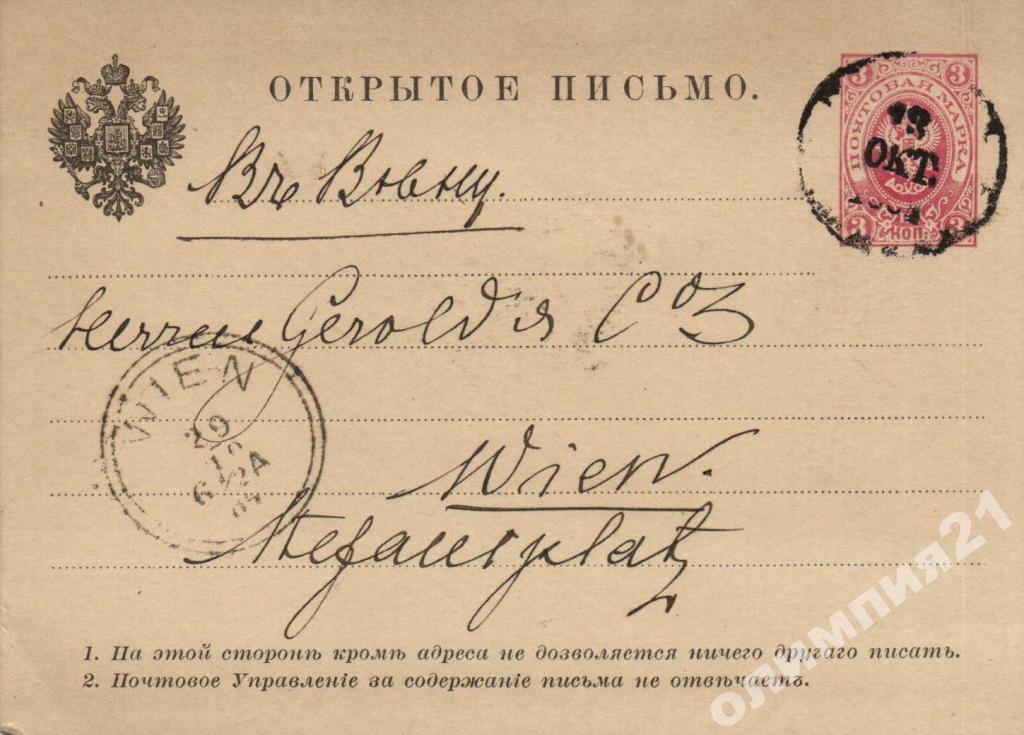 ОТКРЫТОЕ ПИСЬМО.
3 3
ПОЧТОВАЯ МАРКА
3 КОП. 3
13
ОКТ.
Въ Вѣну.
Herren Gerold's Co
WIEN
29
10
6 1/2 A
Wien.
Stefansplatz
1. На этой сторонѣ кромѣ адреса не дозволяется ничего другаго писать.
2. Почтовое Управленіе за содержаніе письма не отвѣчаетъ.
олимпия21